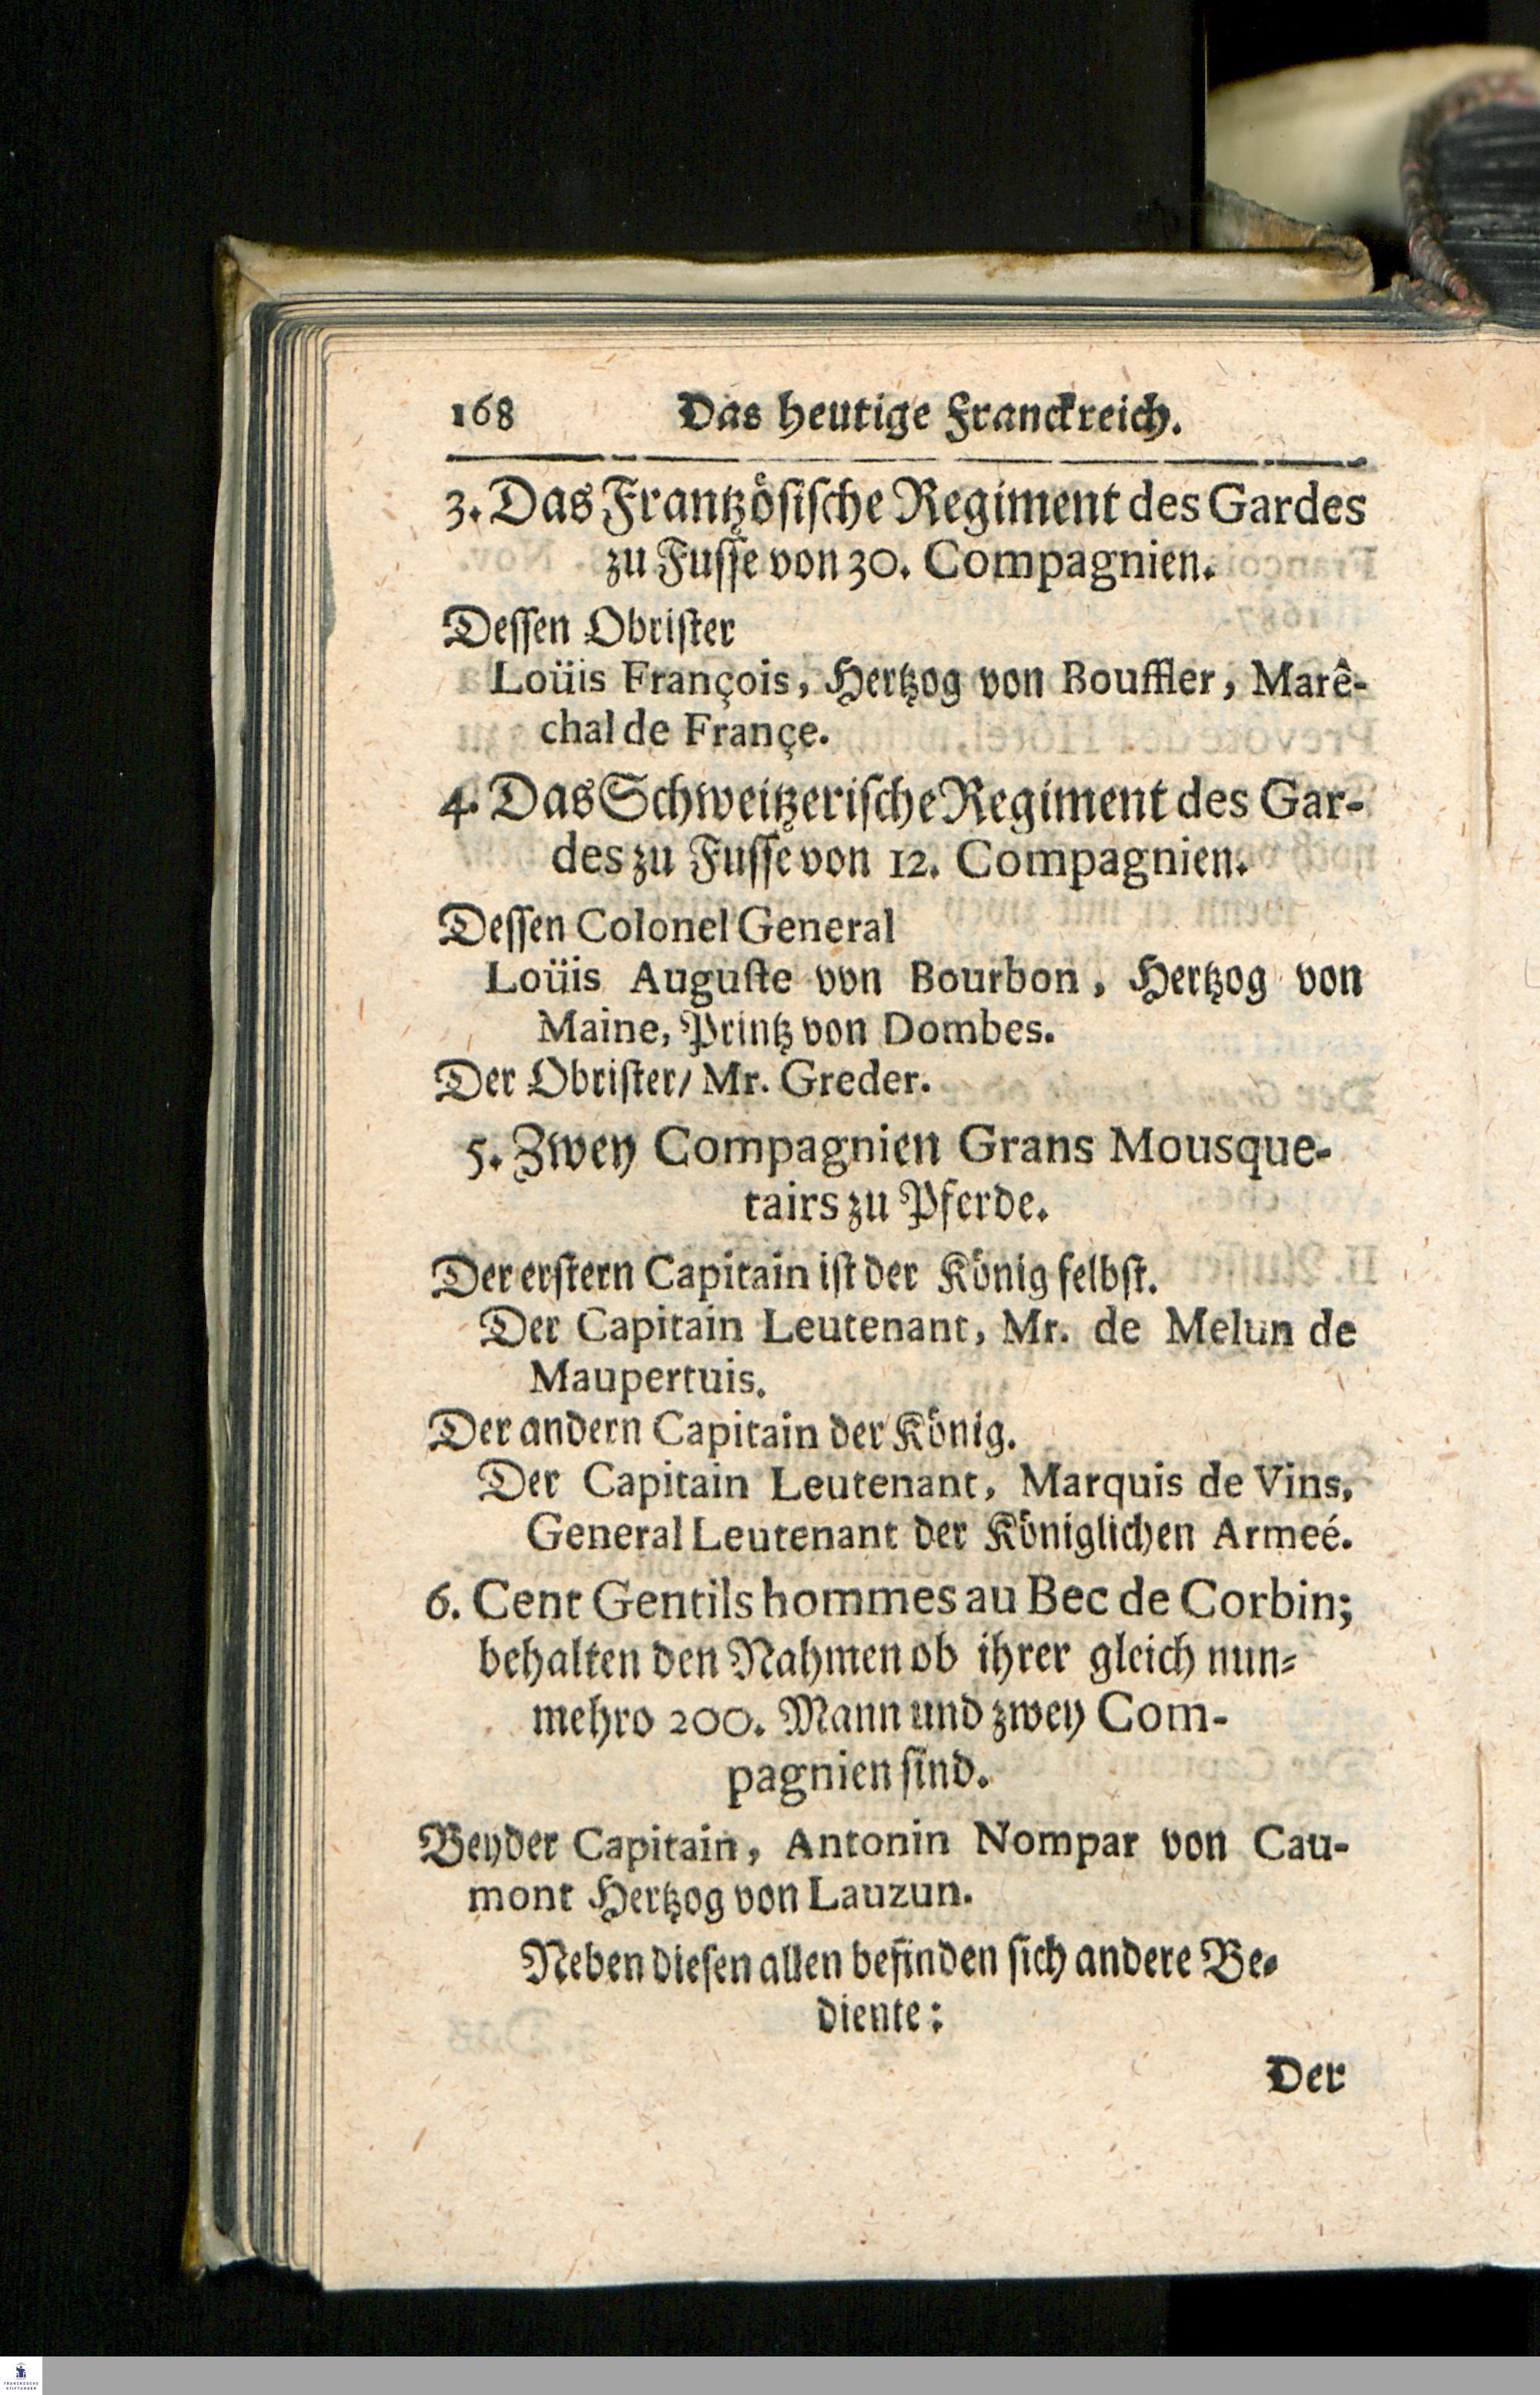 168 Das heutige Franckreich.
3. Das Frantzösische Regiment des Gardes
zu Fusse von 30. Compagnien.
Dessen Obrister
Loüis François, Hertzog von Bouffler, Marê-
chal de Françe.
4. Das Schweitzerische Regiment des Gar-
des zu Fusse von 12. Compagnien.
Dessen Colonel General
Loüis Auguste von Bourbon, Hertzog von
Maine, Printz von Dombes.
Der Obrister/ Mr. Greder.
5. Zwey Compagnien Grans Mousque-
tairs zu Pferde.
Der erstern Capitain ist der König selbst.
Der Capitain Leutenant, Mr. de Melun de
Maupertuis.
Der andern Capitain der König.
Der Capitain Leutenant, Marquis de Vins,
General Leutenant der Königlichen Armeé.
6. Cent Gentils hommes au Bec de Corbin;
behalten den Nahmen ob ihrer gleich nun-
mehro 200. Mann und zwey Com-
pagnien sind.
Beyder Capitain, Antonin Nompar von Cau-
mont Hertzog von Lauzun.
Neben diesen allen befinden sich andere Be-
diente:
Der
FRANCKESCHE
STIFTUNGEN